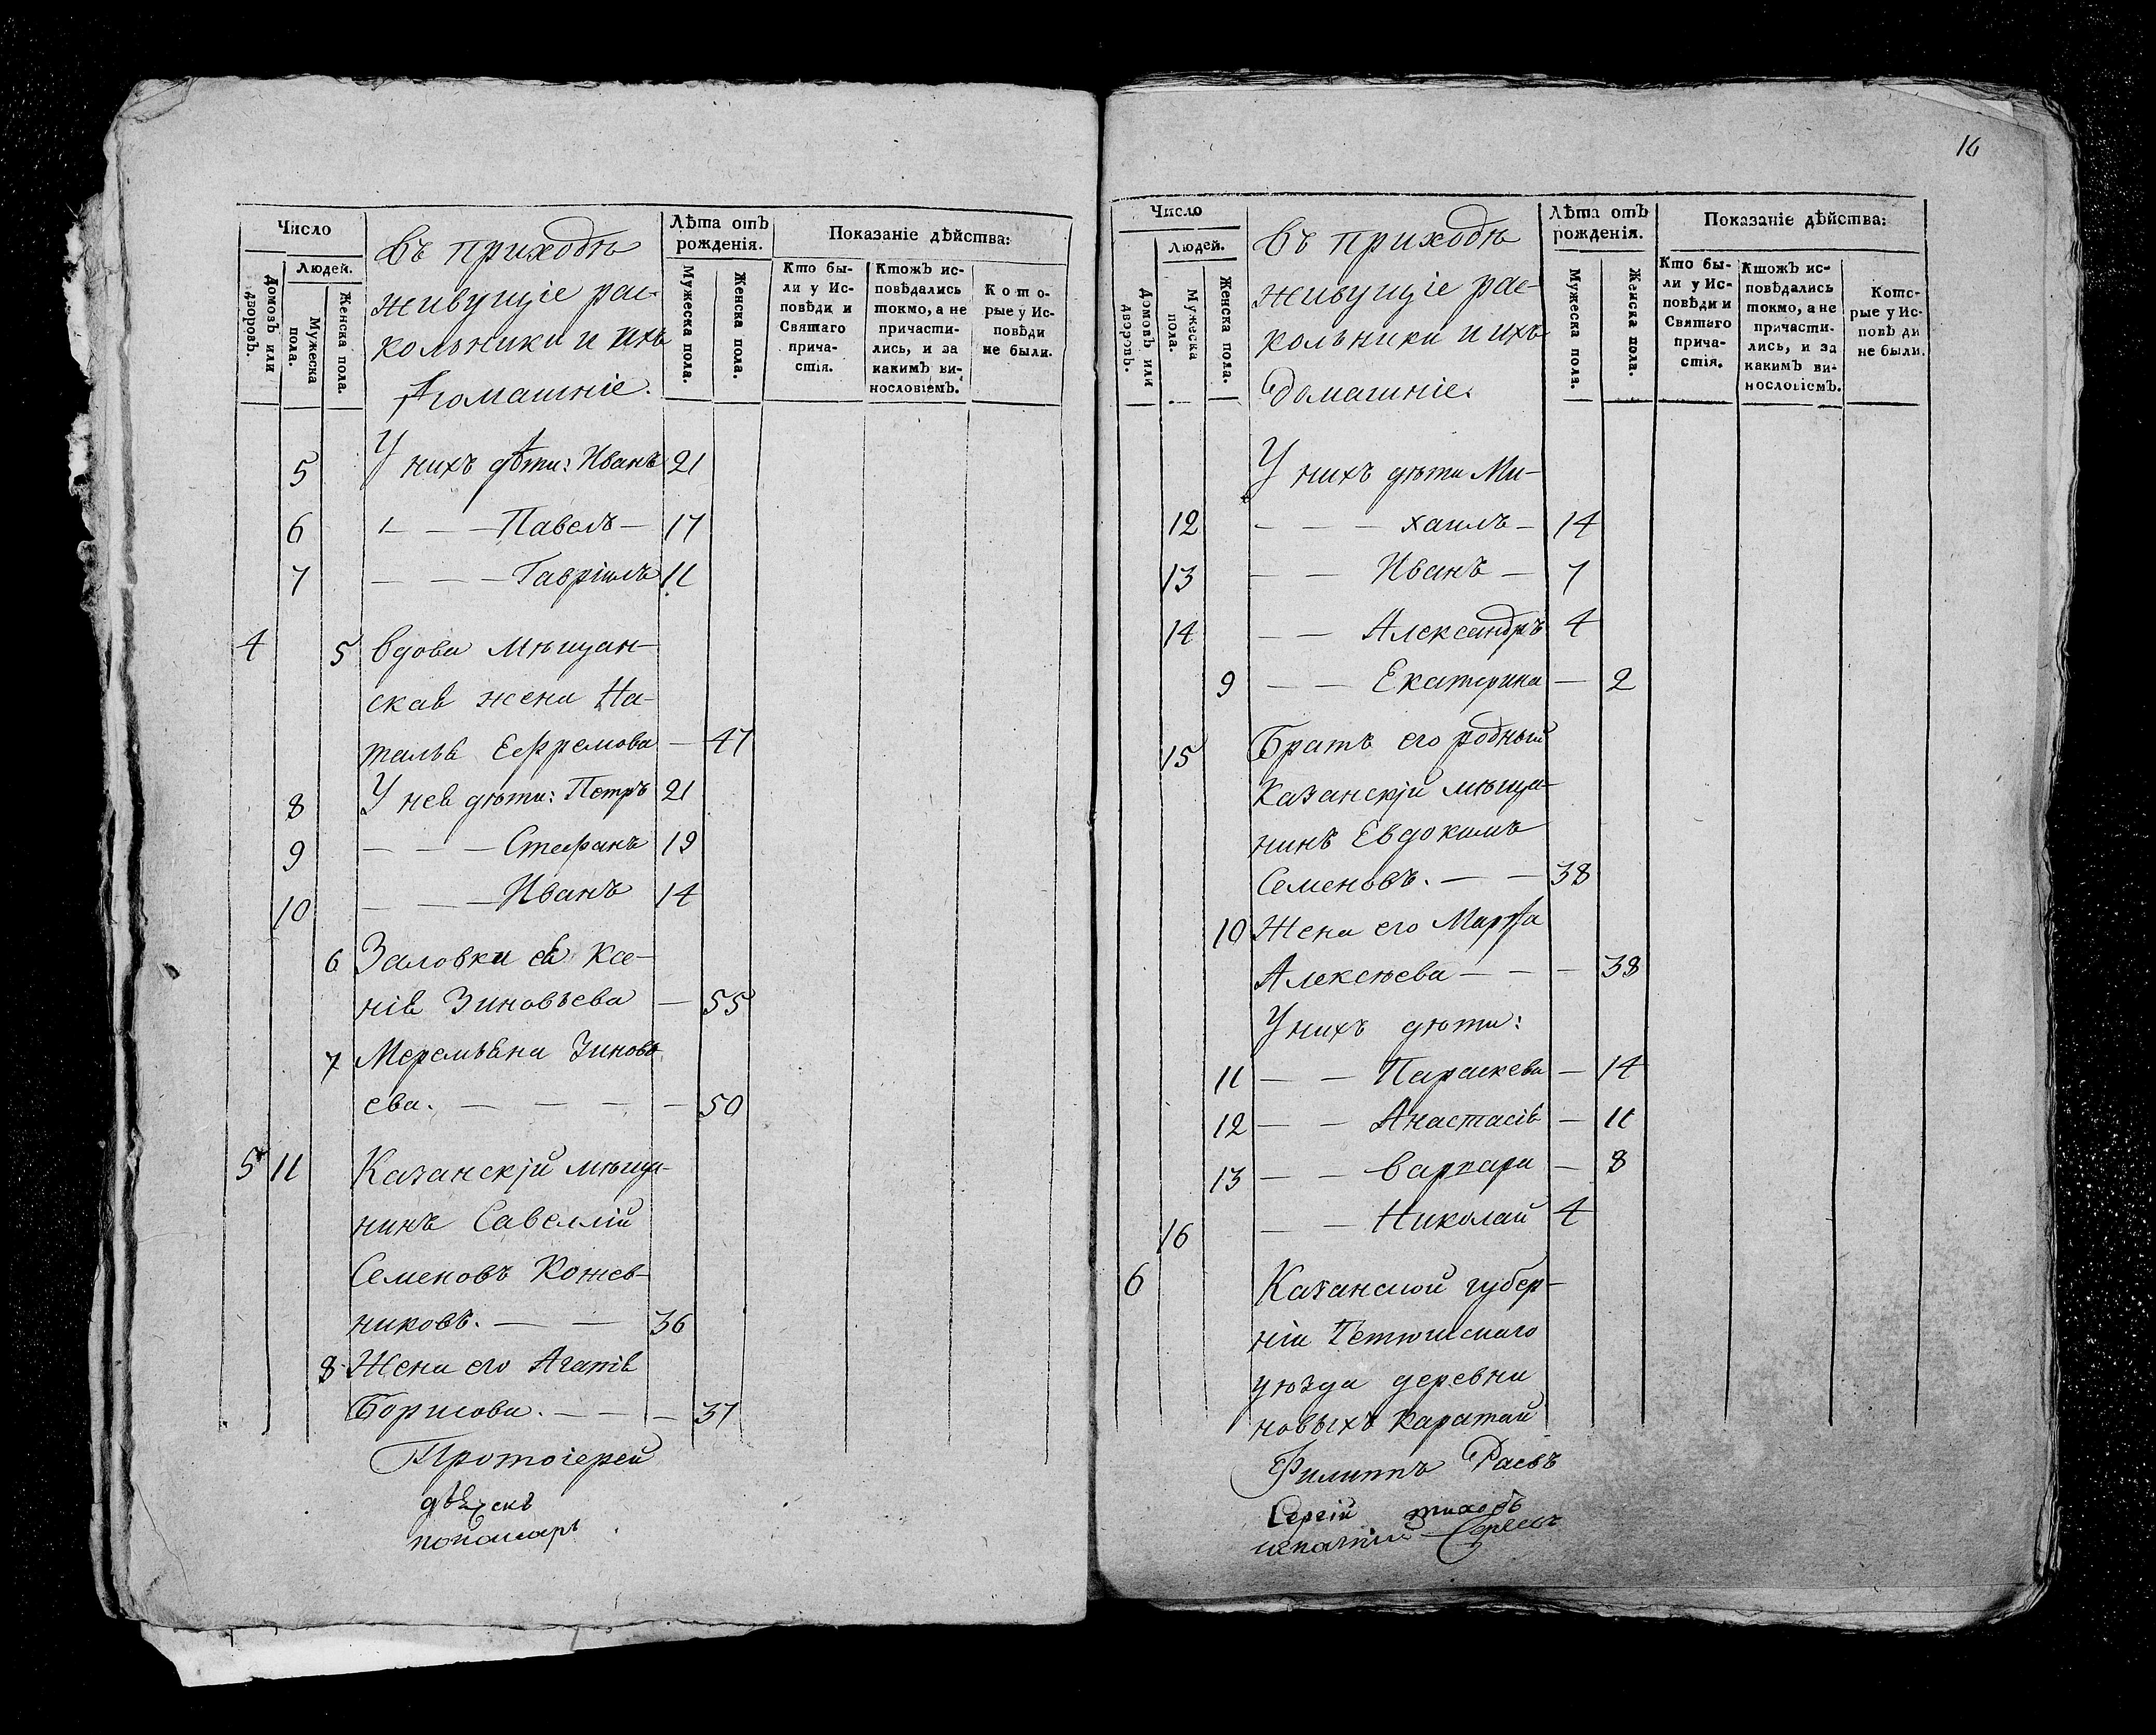 Число
Людей.
Домовъ или дворовъ.
Мужеска пола.
Женска пола.
Въ приходѣ
живущіе рас-
кольники и ихъ
домашніе.
Лѣта отъ рожденія.
Мужеска пола.
Женска пола.
Показаніе дѣйства:
Кто бы-
ли у Ис-
повѣди и
Святаго
прича-
стія.
Ктожъ ис-
повѣдались
токмо, а не
причасти-
лись, и за
какимъ ви-
нословіемъ.
Кото-
рые у Ис-
повѣди
не были.
5 У нихъ дѣти: Иванъ 21
6 — — — Павелъ — 17
7 — — — Гавріилъ 11
4 5 Вдова мѣщан-
ская жена На-
талья Ефремова — 47
8 У нея дѣти: Петръ 21
9 — — — Стефанъ 19
10 — — — Иванъ 14
6 Заловки ея Ксе-
нія Зиновьева — 55
7 Меремьяна Зиновь-
ева. — — — — 50
5 11 Казанскји мѣща-
нинъ Савеллій
Семеновъ Кожев-
никовъ. — — 36
8 Жена его Агапія
Борисова. — — — 37
Протоіерей
дьяконъ
пономарь
16
Число
Людей.
Домовъ или дворовъ.
Мужеска пола.
Женска пола.
Въ приходѣ
живущіе рас-
кольники и ихъ
домашніе.
Лѣта отъ рожденія.
Мужеска пола.
Женска пола.
Показаніе дѣйства:
Кто бы-
ли у Ис-
повѣди и
Святаго
прича-
стія.
Ктожъ ис-
повѣдались
токмо, а не
причасти-
лись, и за
какимъ ви-
нословіемъ.
Кото-
рые у Ис-
повѣди
не были.
У нихъ дѣти Ми-
12 — — — хаилъ — 14
13 — — Иванъ — 7
14 — — Александръ 4
9 — — Екатерина — 2
15 Братъ его родный
Казанскји мѣща-
нинъ Евдокимъ
Семеновъ. — — 38
10 Жена его Марфа
Алексѣева — — — 38
У нихъ дѣти:
11 — — Параскева — 14
12 — — Анастасія — 11
13 — — Варвара — 8
16 — — Николай 4
6 Казанской губер-
ніи Тетюшскаго
уѣзда деревни
новыхъ Каратай
Филиппъ Раевъ
Сергій